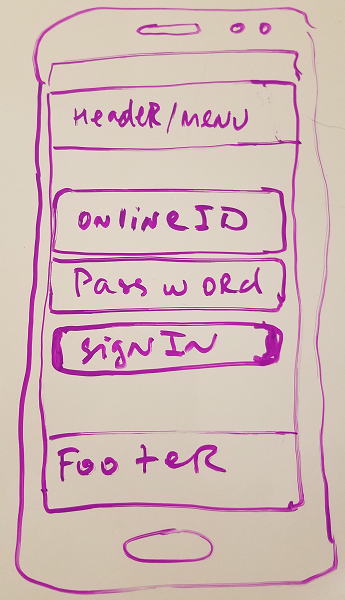 HeadeR/menu
onlineID
Password
signIN
FooteR